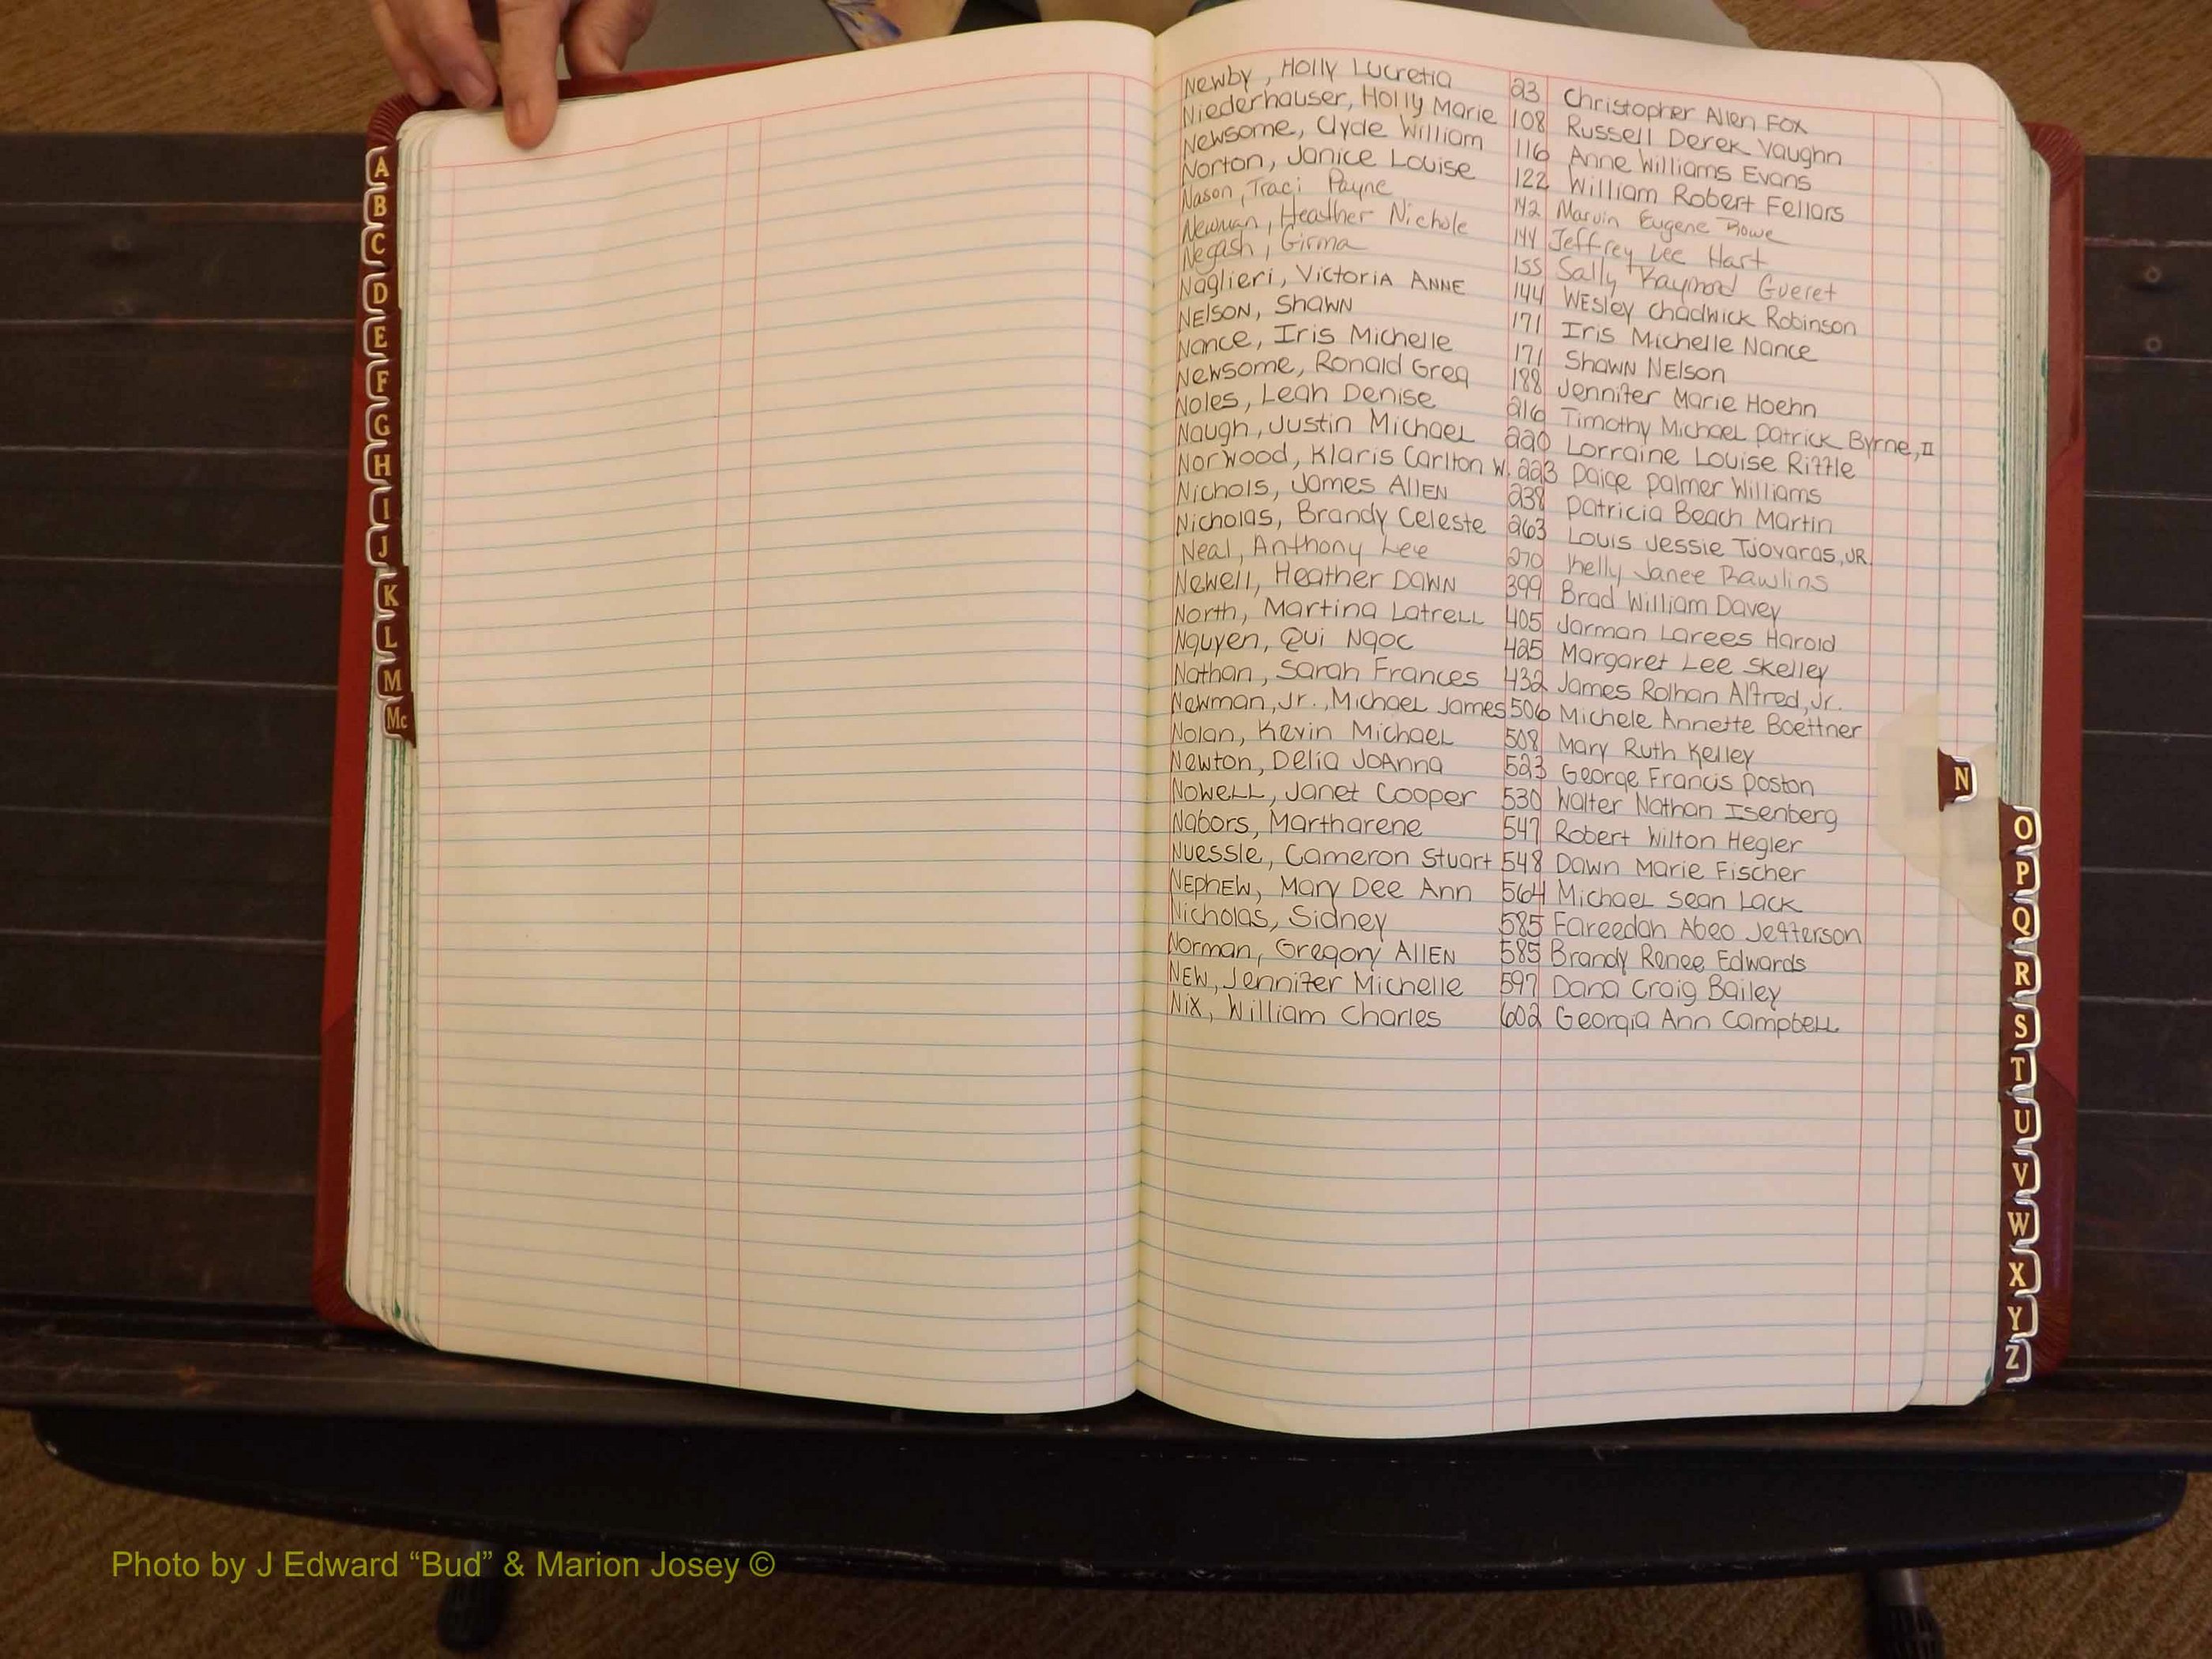 A
B
C
D
E
F
G
H
I
J
K
L
M
Mc
Newby, Holly Lucretia 23 Christopher Allen Fox
Niederhauser, Holly Marie 108 Russell Derek Vaughn
Newsome, Clyde William 116 Anne Williams Evans
Norton, Janice Louise 122 William Robert Fellars
Nason, Traci Payne 142 Marvin Eugene Rowe
Newman, Heather Nichole 144 Jeffrey Lee Hart
Negash, Girma 155 Sally Raymond Gueret
Naglieri, Victoria Anne 144 Wesley Chadwick Robinson
Nelson, Shawn 171 Iris Michelle Nance
Nance, Iris Michelle 171 Shawn Nelson
Newsome, Ronald Greg 188 Jennifer Marie Hoehn
Noles, Leah Denise 216 Timothy Michael Patrick Byrne, II
Naugh, Justin Michael 220 Lorraine Louise Riffle
Norwood, Klaris Carlton W. 223 Paige Palmer Williams
Nichols, James Allen 238 Patricia Beach Martin
Nicholas, Brandy Celeste 263 Louis Jessie Tjovaras, Jr.
Neal, Anthony Lee 270 Kelly Janee Rawlins
Newell, Heather Dawn 399 Brad William Davey
North, Martina Latrell 405 Jarman Larees Harold
Nguyen, Qui Ngoc 425 Margaret Lee Skelley
Nathan, Sarah Frances 432 James Rolhan Alfred, Jr.
Newman, Jr., Michael James 506 Michele Annette Boettner
Nolan, Kevin Michael 508 Mary Ruth Kelley
Newton, Delia JoAnna 523 George Francis Poston
Nowell, Janet Cooper 530 Walter Nathan Isenberg
Nabors, Martharene 547 Robert Wilton Hegler
Nuessle, Cameron Stuart 548 Dawn Marie Fischer
Nephew, Mary Dee Ann 564 Michael Sean Lack
Nicholas, Sidney 585 Fareedah Abeo Jefferson
Norman, Gregory Allen 585 Brandy Renee Edwards
New, Jennifer Michelle 597 Dana Craig Bailey
Nix, William Charles 602 Georgia Ann Campbell
N
O
P
Q
R
S
T
U
V
W
X
Y
Z
Photo by J Edward “Bud” & Marion Josey ©